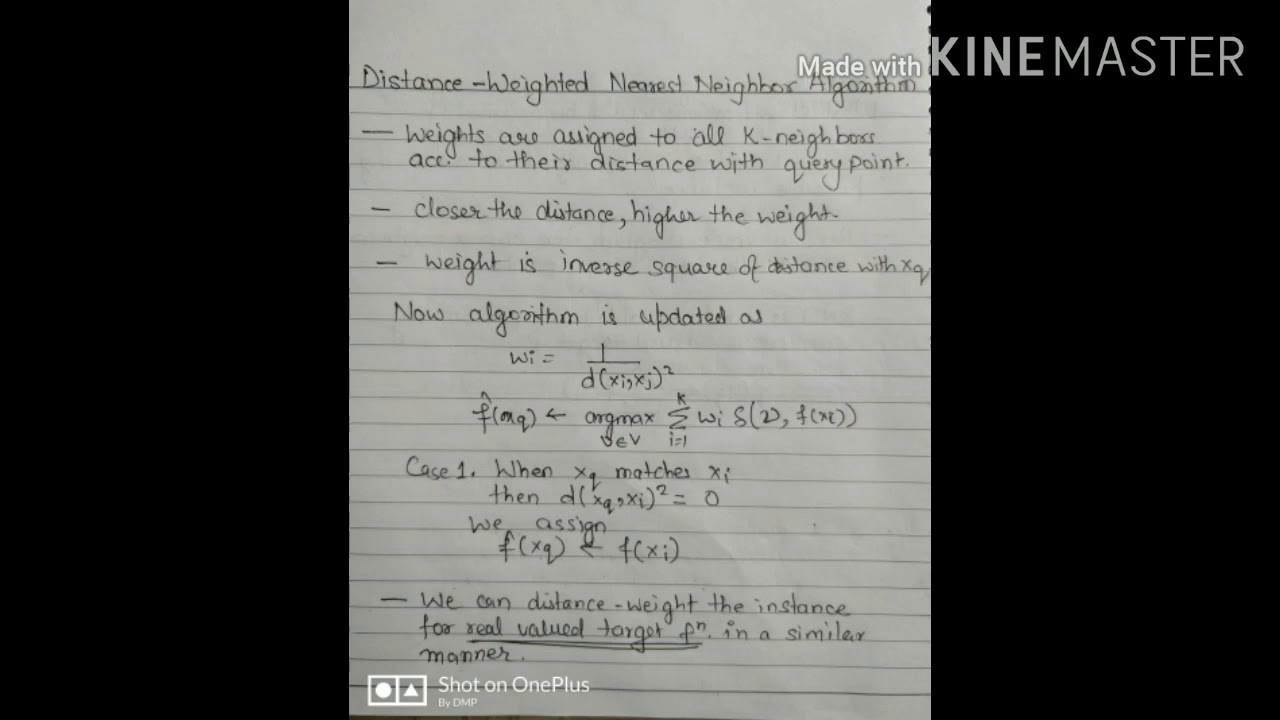 Made with KINEMASTER
Distance-Weighted Nearest Neighbor Algorithm
— Weights are assigned to all K-neighbors
acc. to their distance with query point.
— closer the distance, higher the weight.
— weight is inverse square of distance with xq
Now algorithm is updated as
wi = 1/d(xi,xj)²
f̂(xq) ← argmax v∈V Σ i=1 k wi δ(v, f(xi))
Case 1. When xq matches xi
then d(xq,xi)² = 0
we assign
f̂(xq) ← f(xi)
— We can distance-weight the instance
for real valued target fⁿ. in a similar
manner.
Shot on OnePlus
By DMP